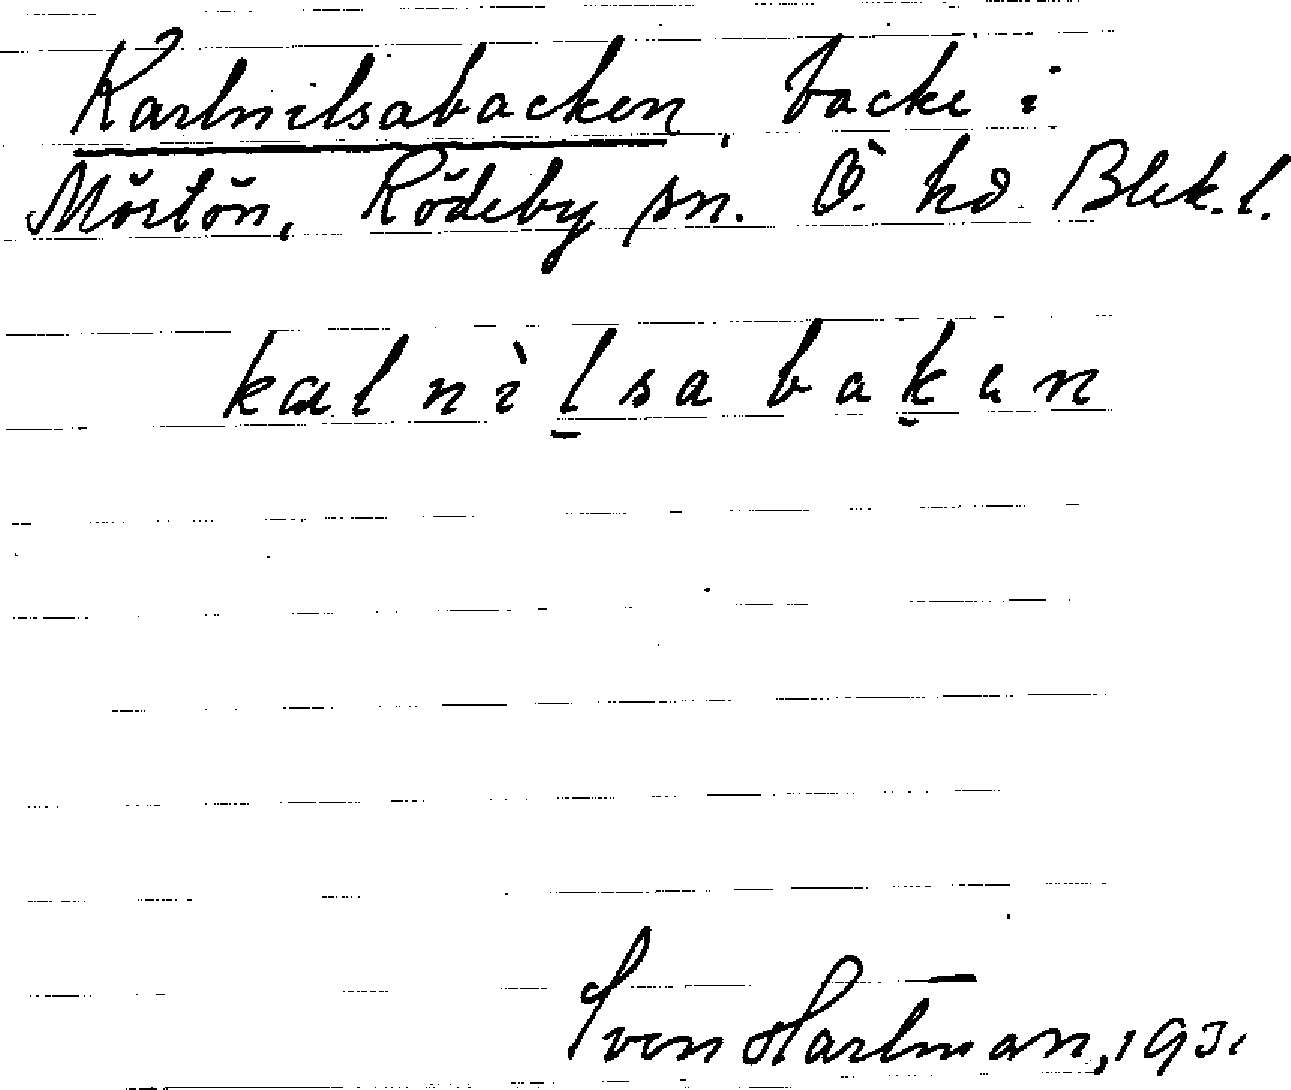 Karlnilsabacken, backe i
Mörtön, Rödeby sn. Ö. hd Blek.l.
kalnìlsabakен
Sven Hartman, 1931